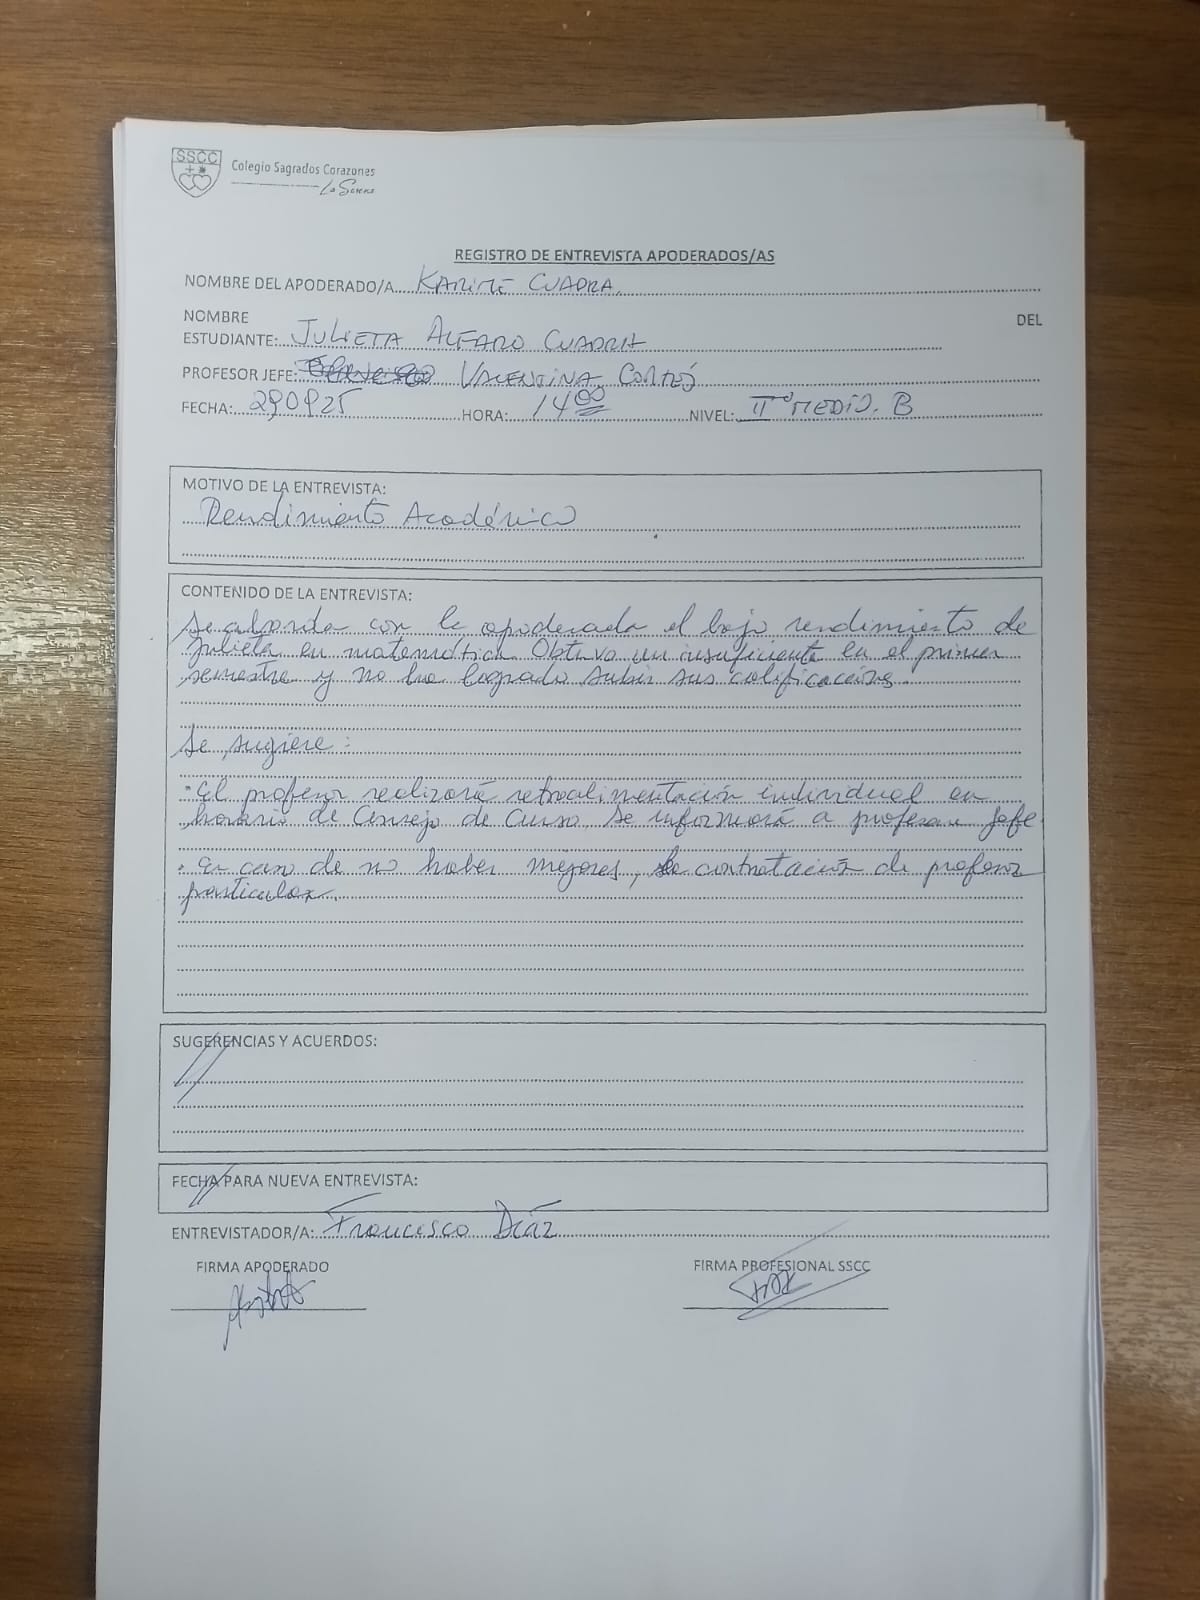 SSCC
Colegio Sagrados Corazones
La Serena
REGISTRO DE ENTREVISTA APODERADOS/AS
NOMBRE DEL APODERADO/A KARIME CUADRA.
NOMBRE DEL
ESTUDIANTE: JULIETA ALFARO CUADRA
PROFESOR JEFE: VALENTINA CORTÉS
FECHA: 290925 HORA: 14 00 NIVEL: IIº MEDIO. B
MOTIVO DE LA ENTREVISTA:
Rendimiento Académico
CONTENIDO DE LA ENTREVISTA:
Se aborda con la apoderada el bajo rendimiento de
Julieta en matemática. Obtuvo un insuficiente en el primer
semestre y no ha logrado subir sus calificaciones.
Se sugiere:
• El profesor realizará retroalimentación individual en
horario de Consejo de Curso. Se informará a profesora Jefe
• En caso de no haber mejoras, la contratación de profesor
particular.
SUGERENCIAS Y ACUERDOS:
FECHA PARA NUEVA ENTREVISTA:
ENTREVISTADOR/A: Francesco Díaz
FIRMA APODERADO FIRMA PROFESIONAL SSCC